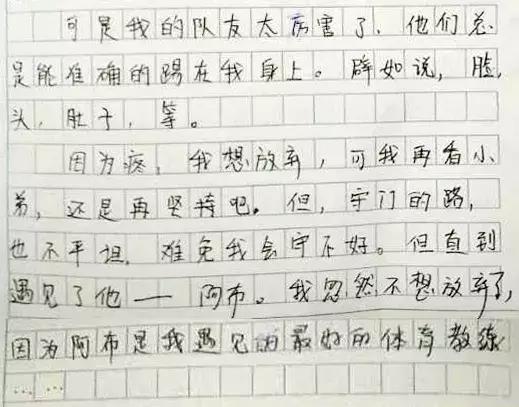 可是我的队友太厉害了，他们总
是能准确的踢在我身上。辟如说，脸，
头，肚子，等。
因为疼，我想放弃，可我再看小
弟，还是再坚持吧。但，守门的路，
也不平坦，难免我会守不好。但直到
遇见了他——阿布。我忽然不想放弃了，
因为阿布是我遇见的最好的体育教练
……